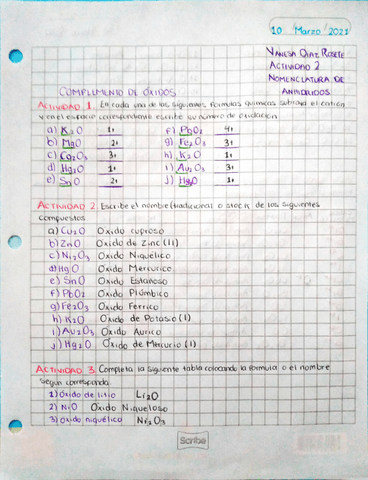 10 / Marzo / 2021
Vanesa Díaz Rozete
Actividad 2
Nomenclatura de
Anhidridos
Complemento de óxidos
Actividad 1. En cada una de las siguientes formulas químicas subraya el catión
y en el espacio correspondiente escribe su número de oxidación.
a) K₂O 1+ f) PbO₂ 4+
b) MgO 2+ g) Fe₂O₃ 3+
c) Co₂O₃ 3+ h) K₂O 1+
d) Hg₂O 1+ i) Au₂O₃ 3+
e) SnO 2+ j) Hg₂O 1+
Actividad 2. Escribe el nombre (tradicional o stock) de los siguientes
compuestos
a) Cu₂O Oxido cuproso
b) ZnO Oxido de Zinc (II)
c) Ni₂O₃ Oxido Niquelico
d) HgO Oxido Mercurico
e) SnO Oxido Estañoso
f) PbO₂ Oxido Plúmbico
g) Fe₂O₃ Oxido Ferrico
h) K₂O Oxido de Potasio (I)
i) Au₂O₃ Oxido Aurico
j) Hg₂O Oxido de Mercurio (I)
Actividad 3. Completa la siguiente tabla colocando la formula o el nombre
según corresponda.
1) Óxido de litio Li₂O
2) NiO Oxido Niqueloso
3) Oxido niquélico Ni₂O₃
Scribe